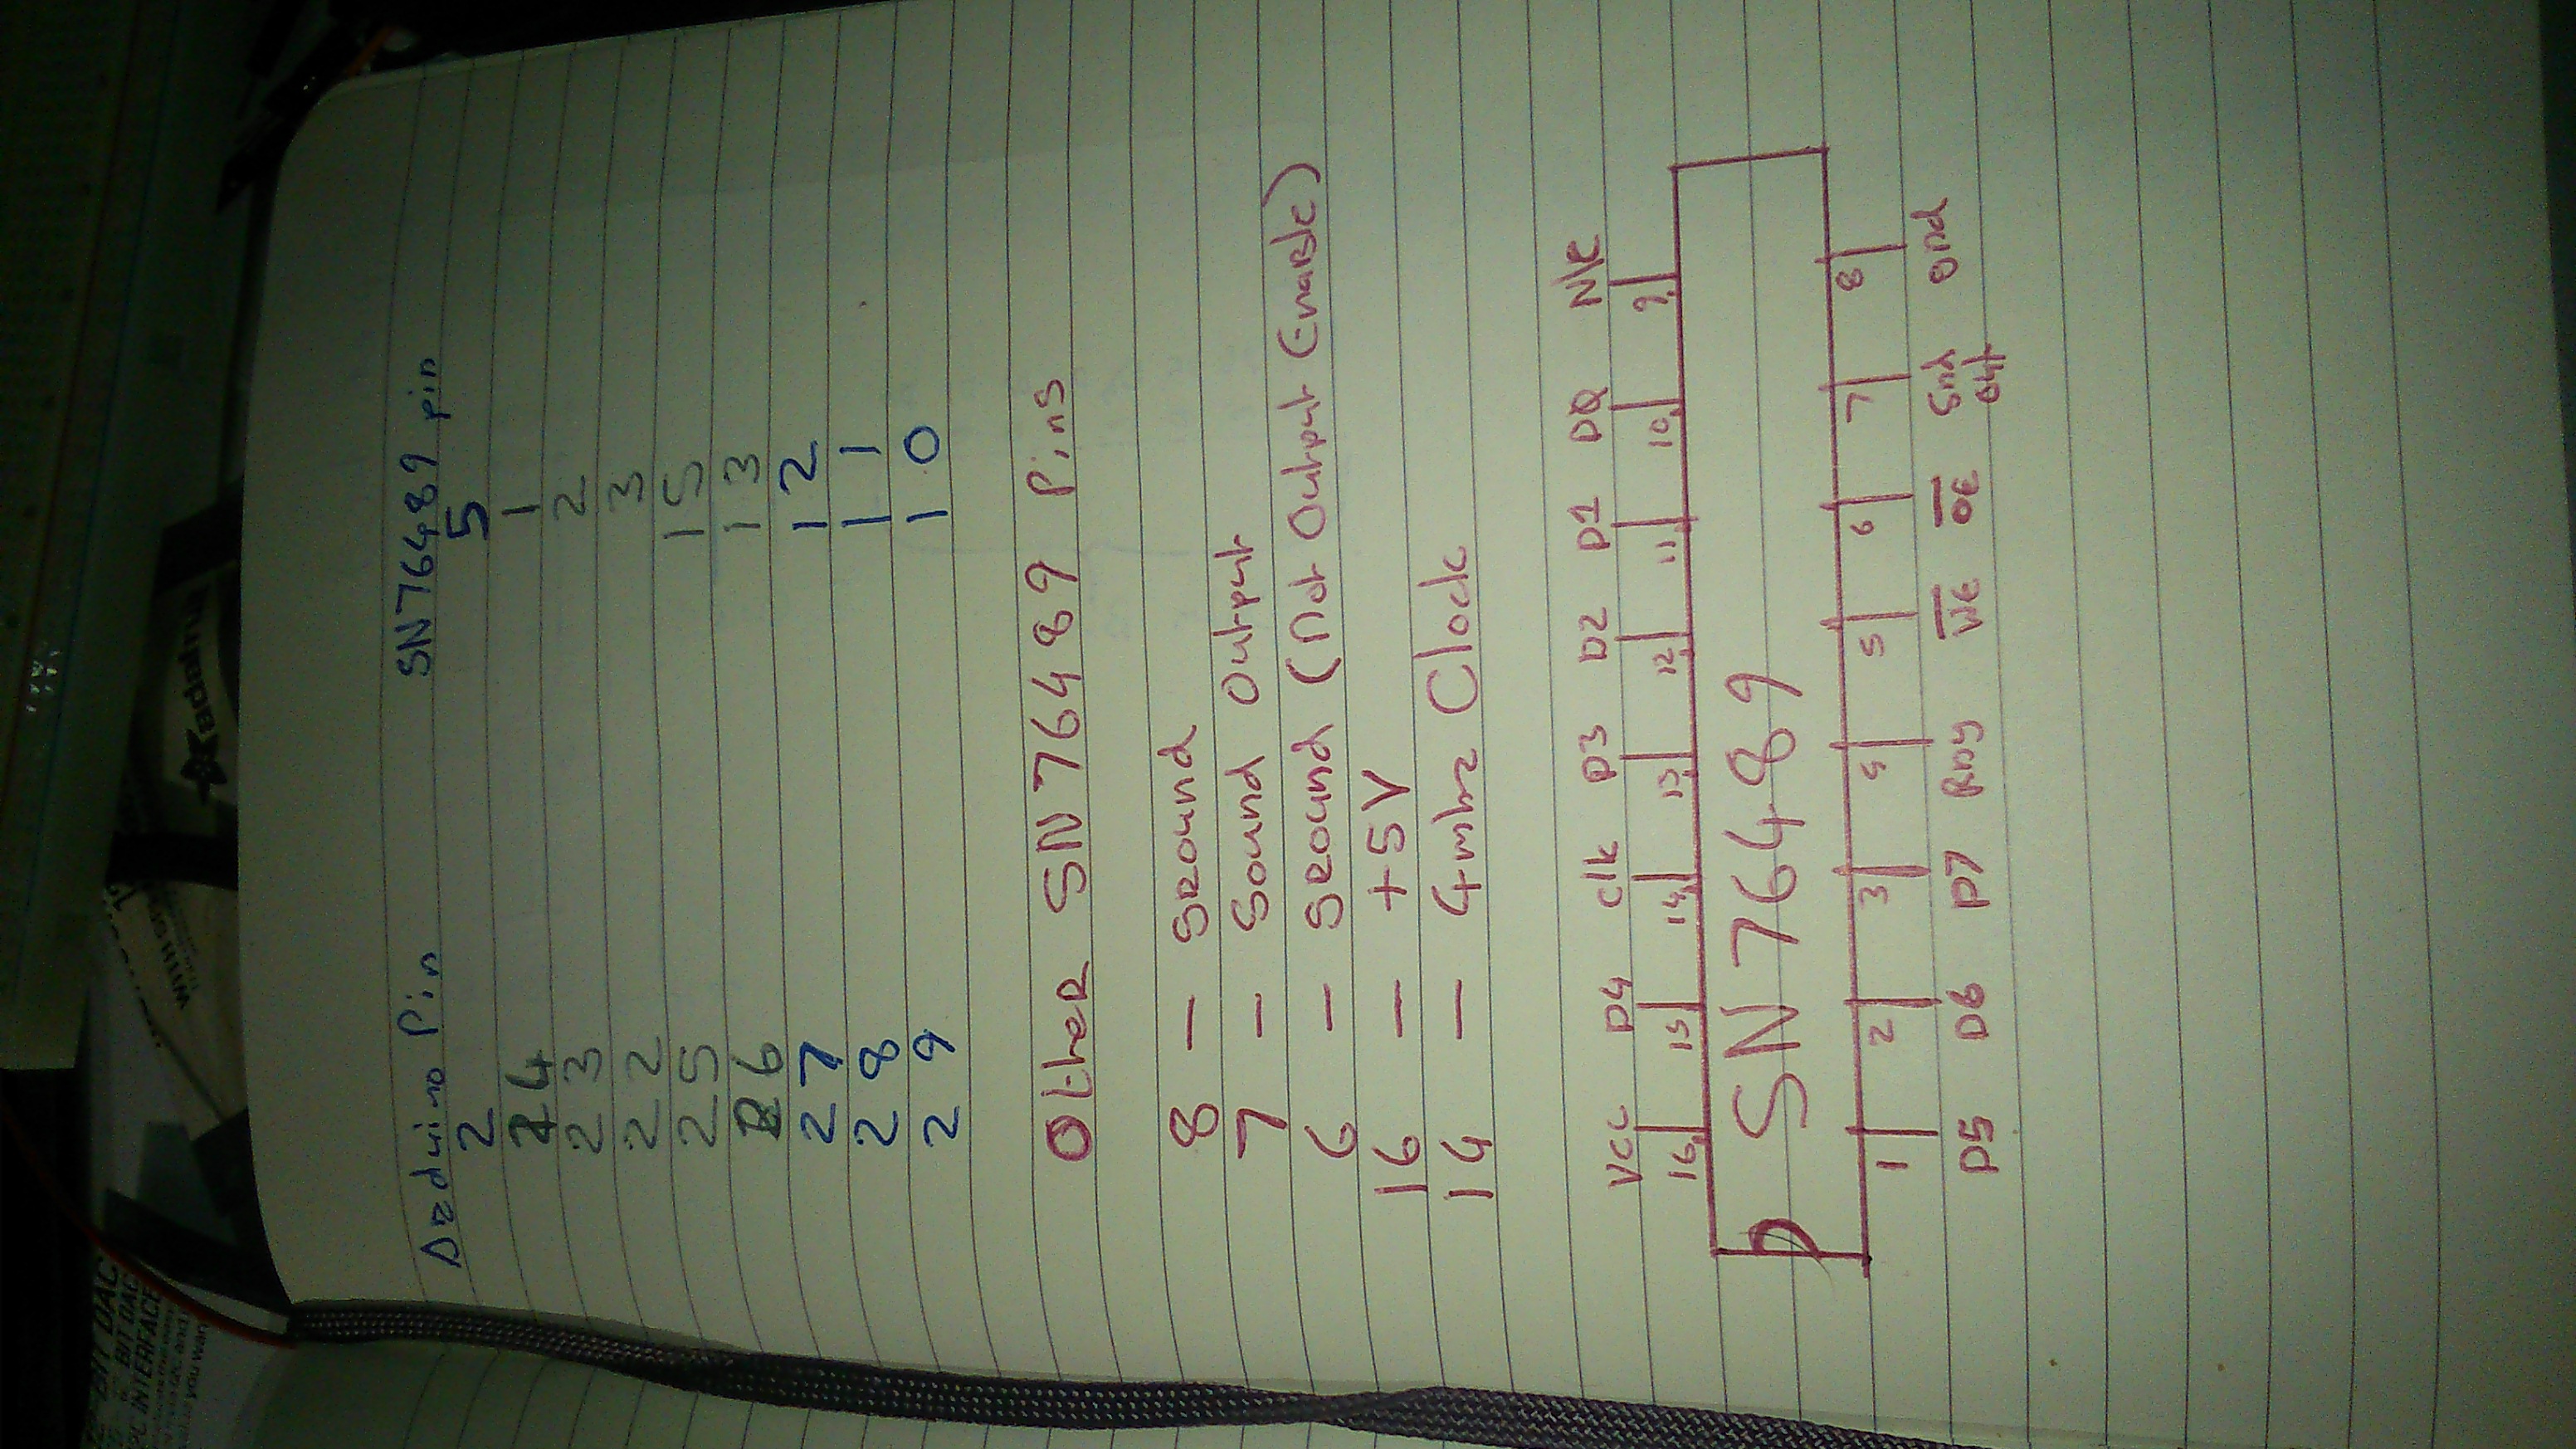 BIT DAC
BIT DAC
INTERFACE
you wan
WITH
adafruit
Arduino Pin SN76489 pin
2 5
24 1
23 2
22 3
25 15
26 13
27 12
28 11
29 10
Other SN76489 Pins
8 — Ground
7 — Sound Output
6 — Ground (Not Output Enable)
16 — +5V
14 — 4mhz Clock
VCC D4 Clk D3 D2 D1 D0 N/C
16 15 14 13 12 11 10 9
SN76489
1 2 3 4 5 6 7 8
D5 D6 D7 Rdy W̅E̅ O̅E̅ Snd gnd
out